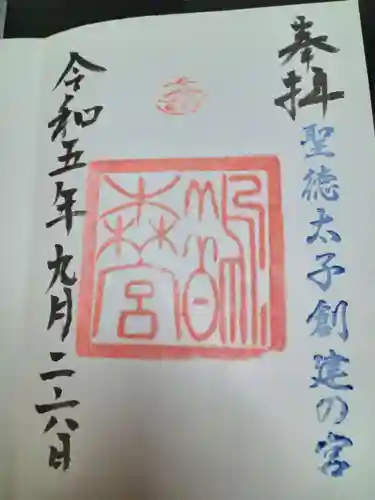 奉拝
聖徳太子創建の宮
鵲森宮
令和五年九月二六日